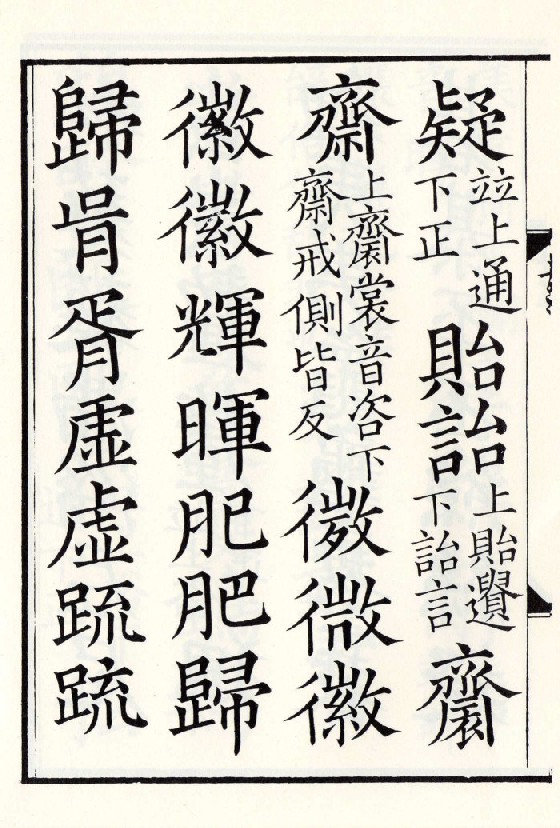 疑竝上通下正貽詒上貽遺下詒言齎
齋上齎裳音咨下齋戒側皆反微微徽
徽徽輝暉肥肥歸
歸胥胥虛虛疏疏